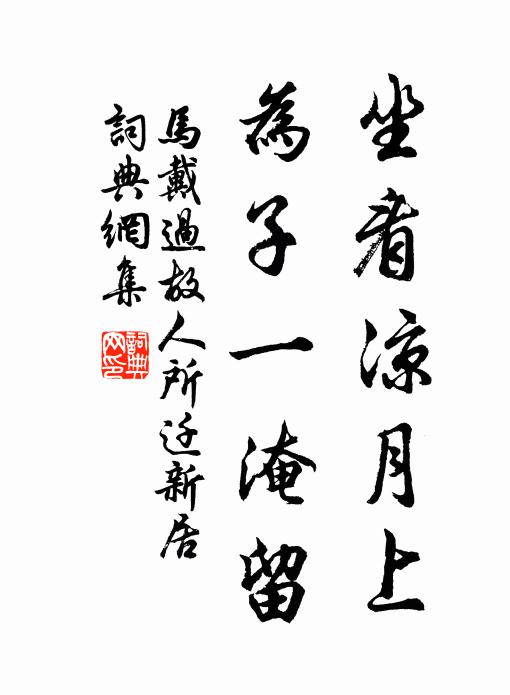 坐看涼月上
為子一淹留
馬戴過故人所迁新居
詞典網集
詞典網印